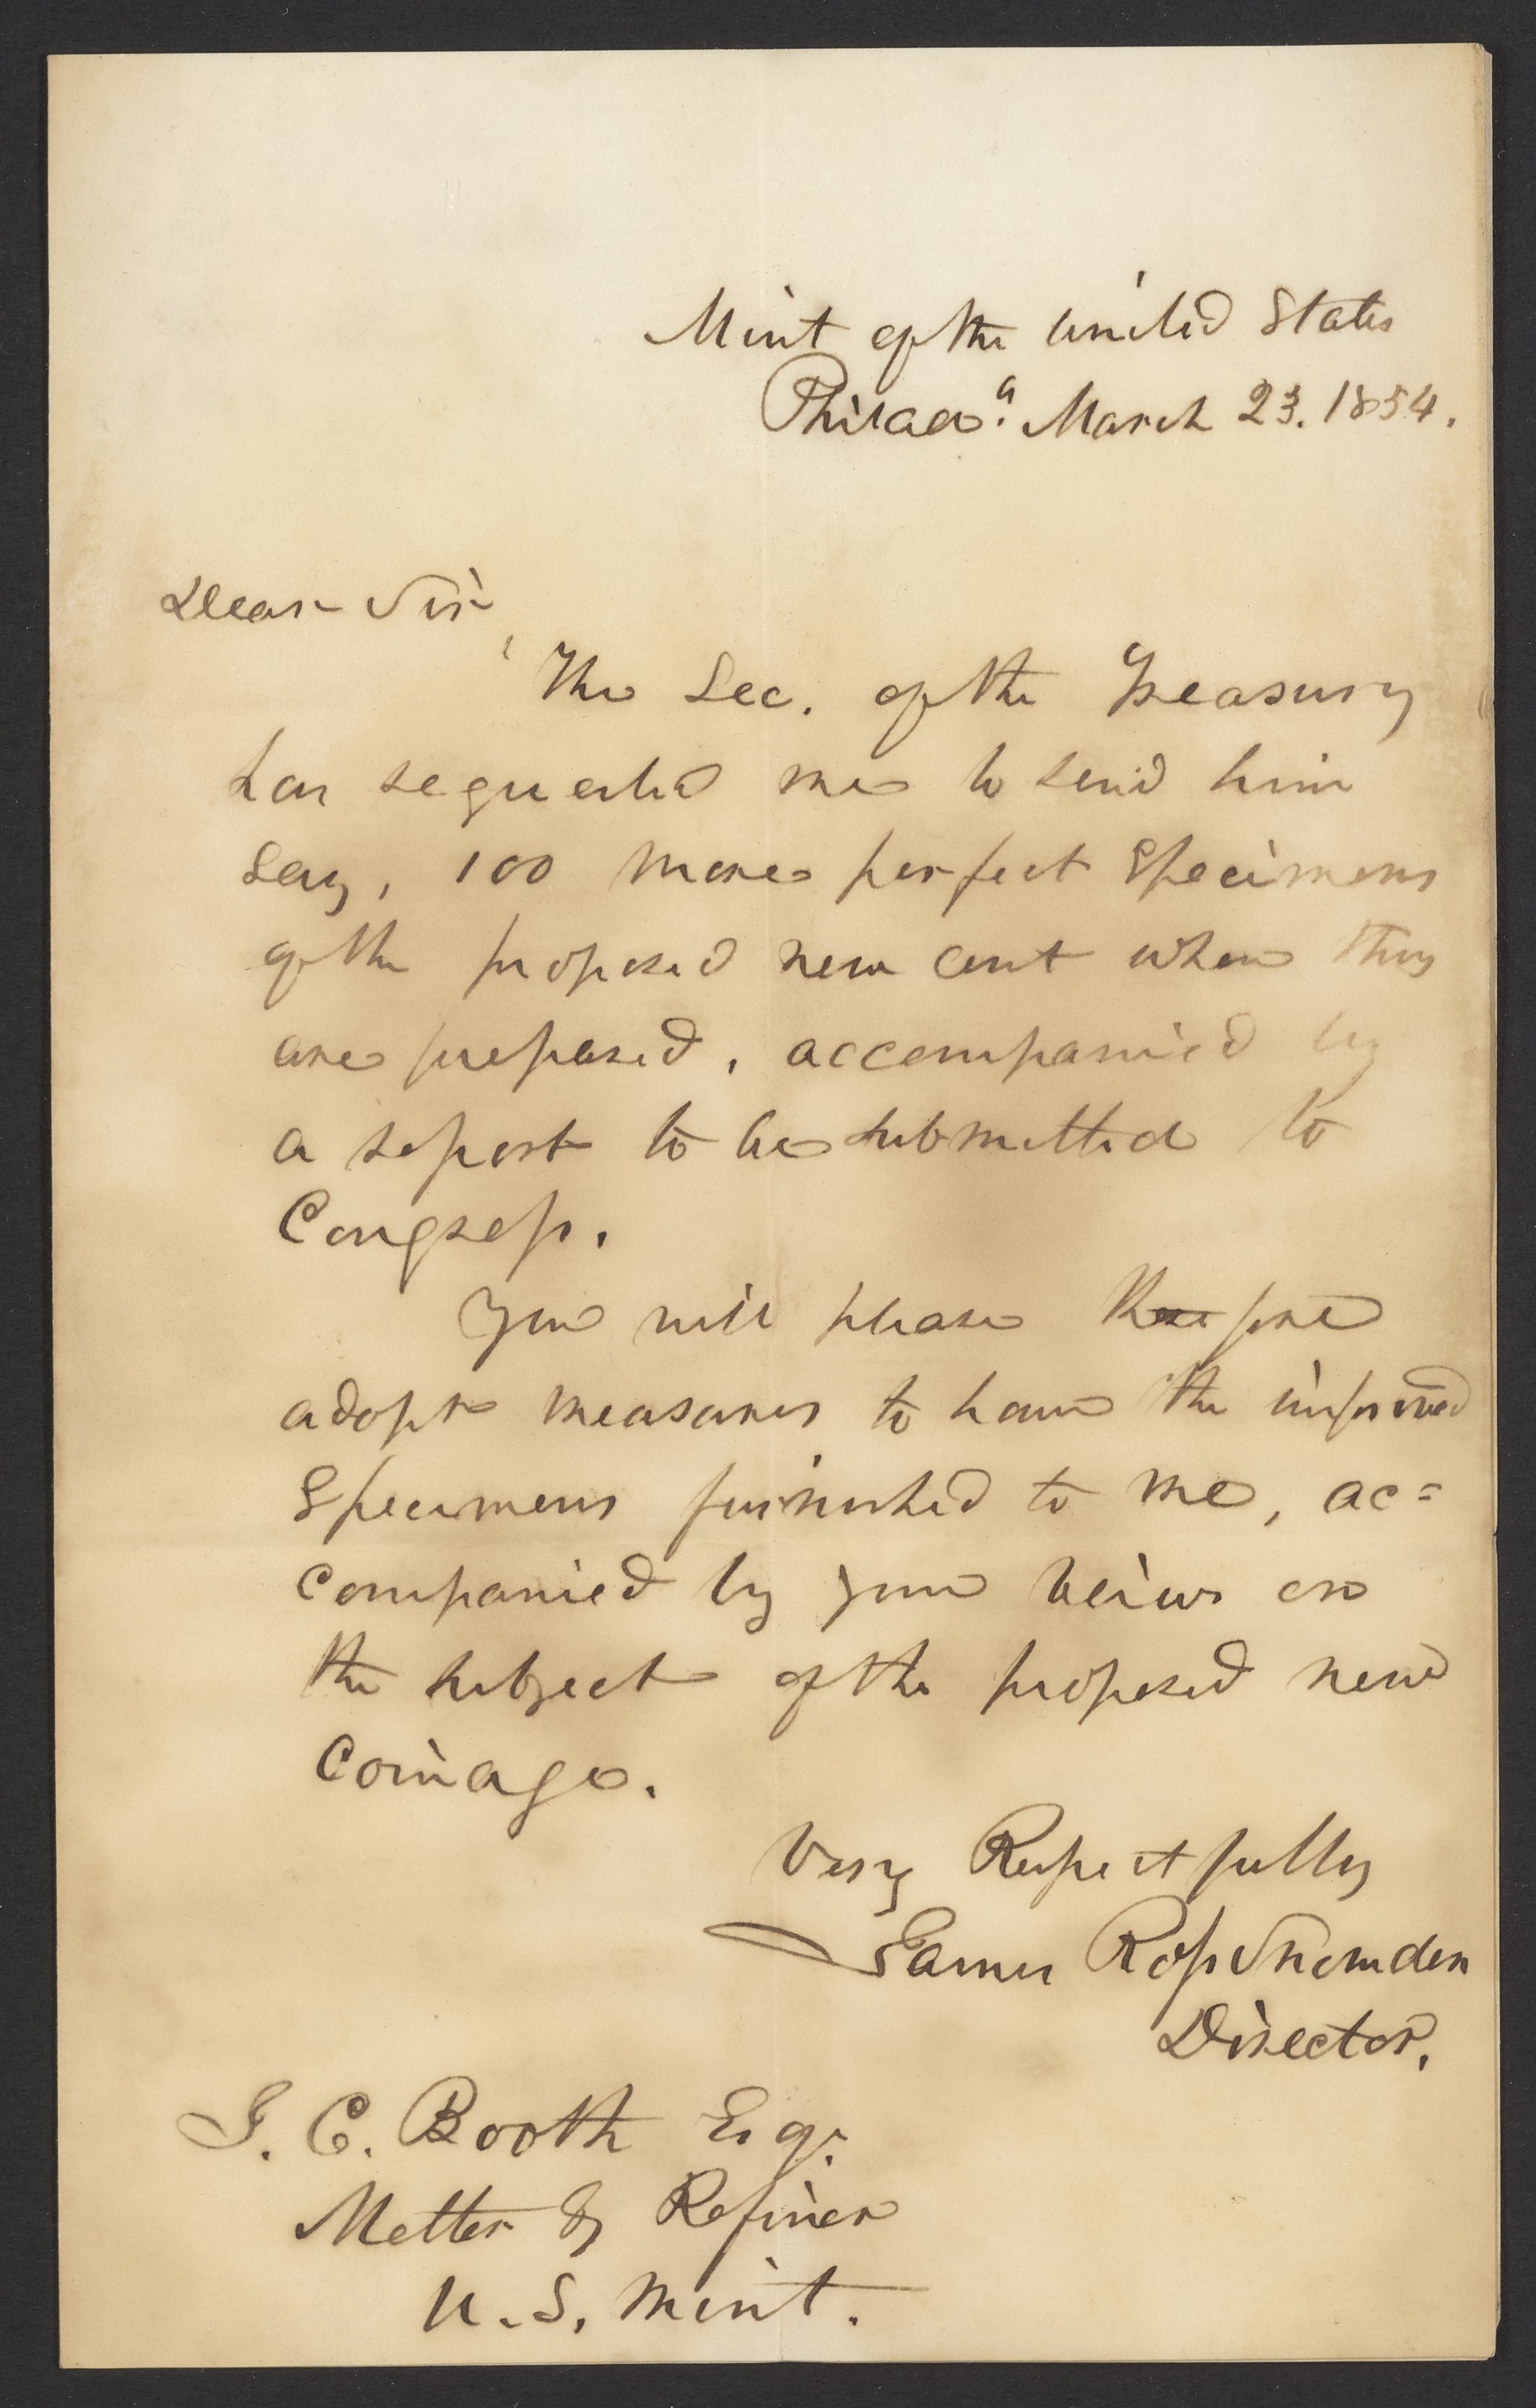 Mint of the United States
Philad.ª March 23. 1854.
Dear Sir,
The Sec. of the Treasury
has requested me to send him
say, 100 more perfect Specimens
of the proposed new cent when they
are prepared, accompanied by
a report to be submitted to
Congress.
You will please therefore
adopt measures to have the improved
Specimens furnished to me, ac=
companied by your views on
the subject of the proposed new
Coinage.
Very Respectfully
James Ross Snowden
Director.
J. C. Booth Esq.
Melter & Refiner
U.S. Mint.